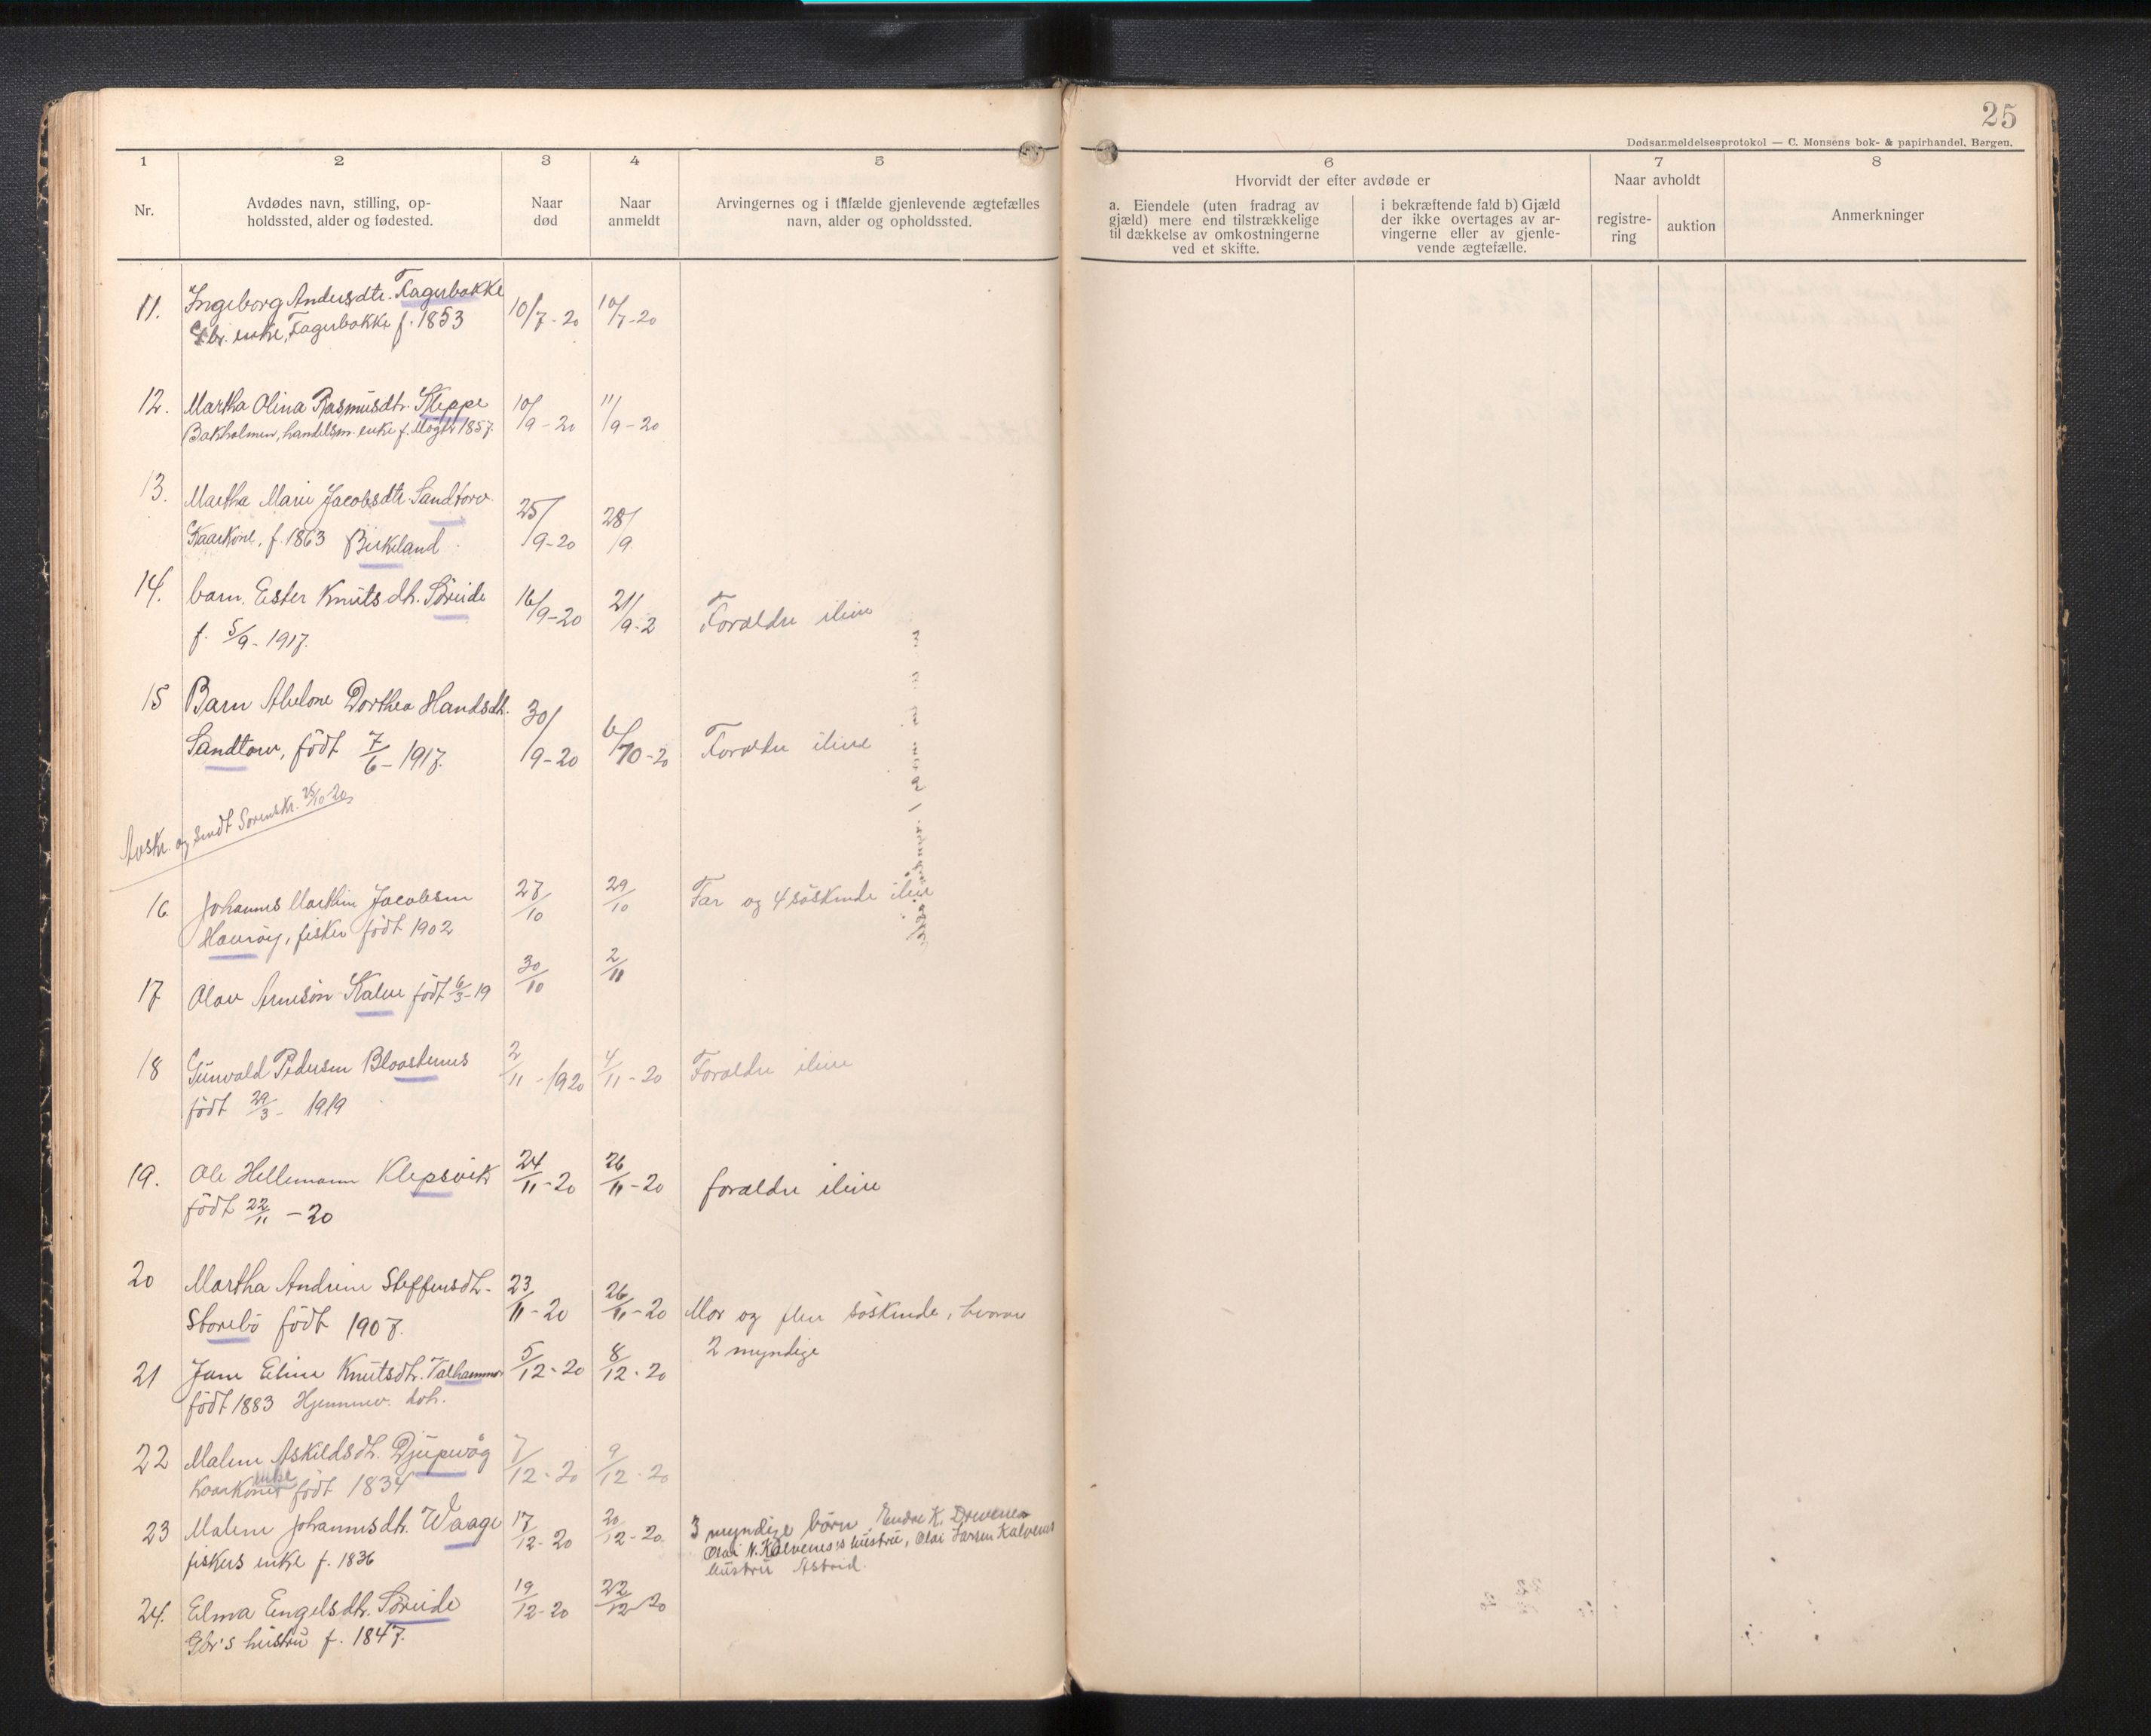 25
Dødsanmeldelsesprotokol — C. Monsens bok- & papirhandel, Bergen.
1 2 3 4 5 6 7 8
Nr.
Avdødes navn, stilling, op-
holdssted, alder og fødested.
Naar
død
Naar
anmeldt
Arvingernes og i tilfælde gjenlevende ægtefælles
navn, alder og opholdssted.
Hvorvidt der efter avdøde er
a. Eiendele (uten fradrag av
gjæld) mere end tilstrækkelige
til dækkelse av omkostningerne
ved et skifte.
i bekræftende fald b) Gjæld
der ikke overtages av ar-
vingerne eller av gjenle-
vende ægtefælle.
Naar avholdt
registre-
ring
auktion
Anmerkninger
11. Ingeborg Andersdtr. Fagerbakke 10/7-20 10/7-20
Gbr. enke, Fagerbakke f. 1853
12. Martha Olina Rasmusdtr. Kleppe 10/9-20 11/9-20
Bakholmen, handelsm. enke f. Møgster 1857.
13. Martha Marie Jacobsdtr. Sandtorv. 25/9-20 28/9.
Kaarkone, f. 1863 Birkeland
14. barn. Ester Knutsdtr. Söreide 16/9-20 21/9-2 Foraldre ilive
f. 5/9-1917.
15 Barn Abelone Dorthea Handsdtr. 30/9-20 6/10-20 Foraldre ilive
Sandtorv, födt 7/6-1917.
Avskr. og sendt Sorenskr. 25/10-20
16. Johannes Marthin Jacobsen 27/10 29/10 Far og 4 söskende ilive
Haveröy, fisker födt 1902
17 Olav Arnesön Kalve födt 6/3-19 30/10 2/11
18 Gunvald Pedersen Blaastenes 2/11-1920 4/11-20 Foraldre ilive
födt 29/3-1919
19. Ole Hellemann Klepsvik 24/11-20 26/11-20 foraldre ilive
födt 22/11-20
20 Martha Andrine Steffensdtr. 23/11-20 26/11-20 Mor og flere söskende, hvorav
Storebö födt 1907. 2 myndige
21 Jane Eline Knutsdtr. Valhammer 5/12-20 8/12-20
födt 1883 Hjemmev. dtr.
22 Malene Askildsdtr. Djupevåg 7/12-20 9/12-20
Kaarkones enke födt 1834
23 Malene Johannesdtr. Waage 17/12-20 20/12-20 3 myndige börn, Endre K.
fiskers enke f. 1836 Olai N. Kalvenes's hustru, Olai Larsen Kalvenes
hustru Astrid.
24. Elma Engelsdtr. Söreide 19/12-20 22/12-20
Gbr's hustru f. 1847.